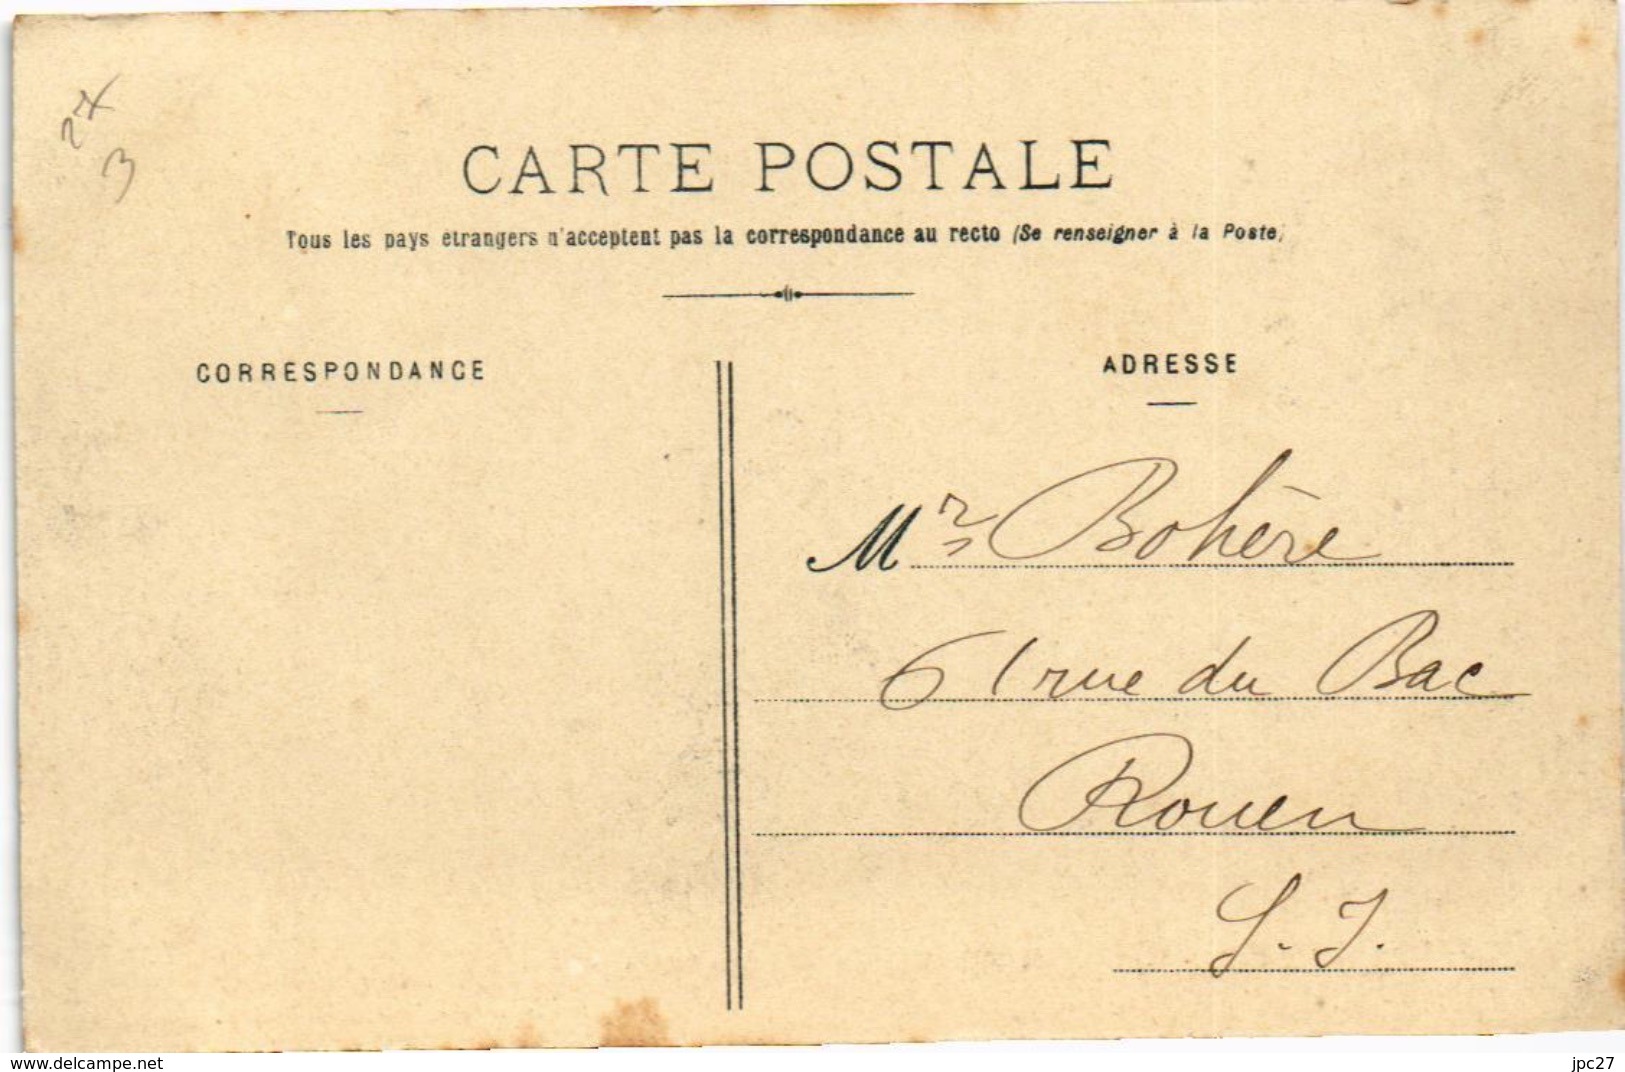 27
3
CARTE POSTALE
Tous les pays etrangers n'acceptent pas la correspondance au recto (Se renseigner à la Poste)
CORRESPONDANCE
ADRESSE
Mr Bohère
61 rue du Bac
Rouen
S. I.
www.delcampe.net
jpc27